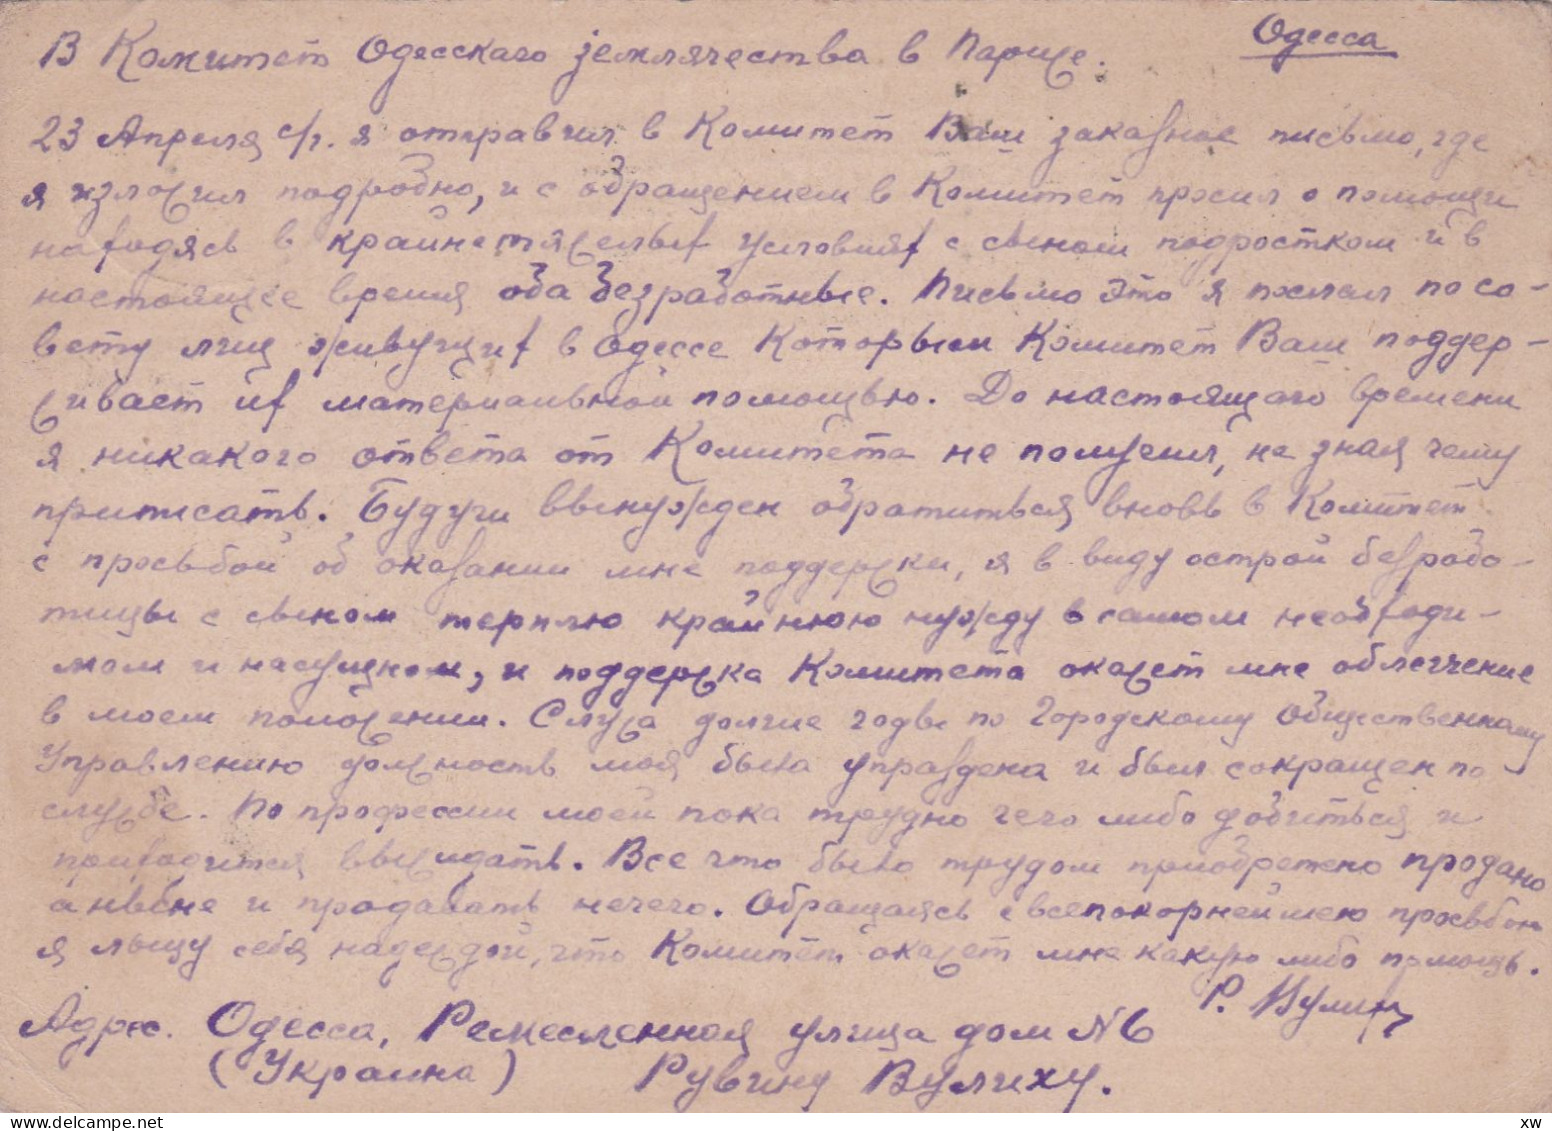 Одесса
В Комитет Одесскаго землячества в Париже.
23 Апреля с/г. я отправил в Комитет Ваш заказное письмо, где
я изложил подробно, и с обращением в Комитет просил о помощи
находясь в крайне тяжелых условиях с сыном подростком и в
настоящее время оба безработные. Письмо это я послал по со-
вету лиц живущих в Одессе которым Комитет Ваш поддер-
живает их материальной помощью. До настоящаго времени
я никакого ответа от Комитета не получил, не зная чему
приписать. Будучи вынужден обратиться вновь в Комитет
с просьбой об оказании мне поддержки, я в виду острой безрабо-
тицы с сыном терплю крайнюю нужду в самом необходи-
мом и насущном, и поддержка Комитета окажет мне облегчение
в моем положении. Служа долгие годы по Городскому Общественному
Управлению должность моя была упразднена и был сокращен по
службе. По профессии моей пока трудно чего либо добиться и
приходится выжидать. Все что было трудом приобретено продано
а ныне и продавать нечего. Обращаясь с всепокорнейшею просьбою
я льщу себя надеждой, что Комитет окажет мне какую либо помощь.
Р. Вулих
Адрес. Одесса, Ремесленная улица дом N6
(Украина) Рувину Вулиху.
xw